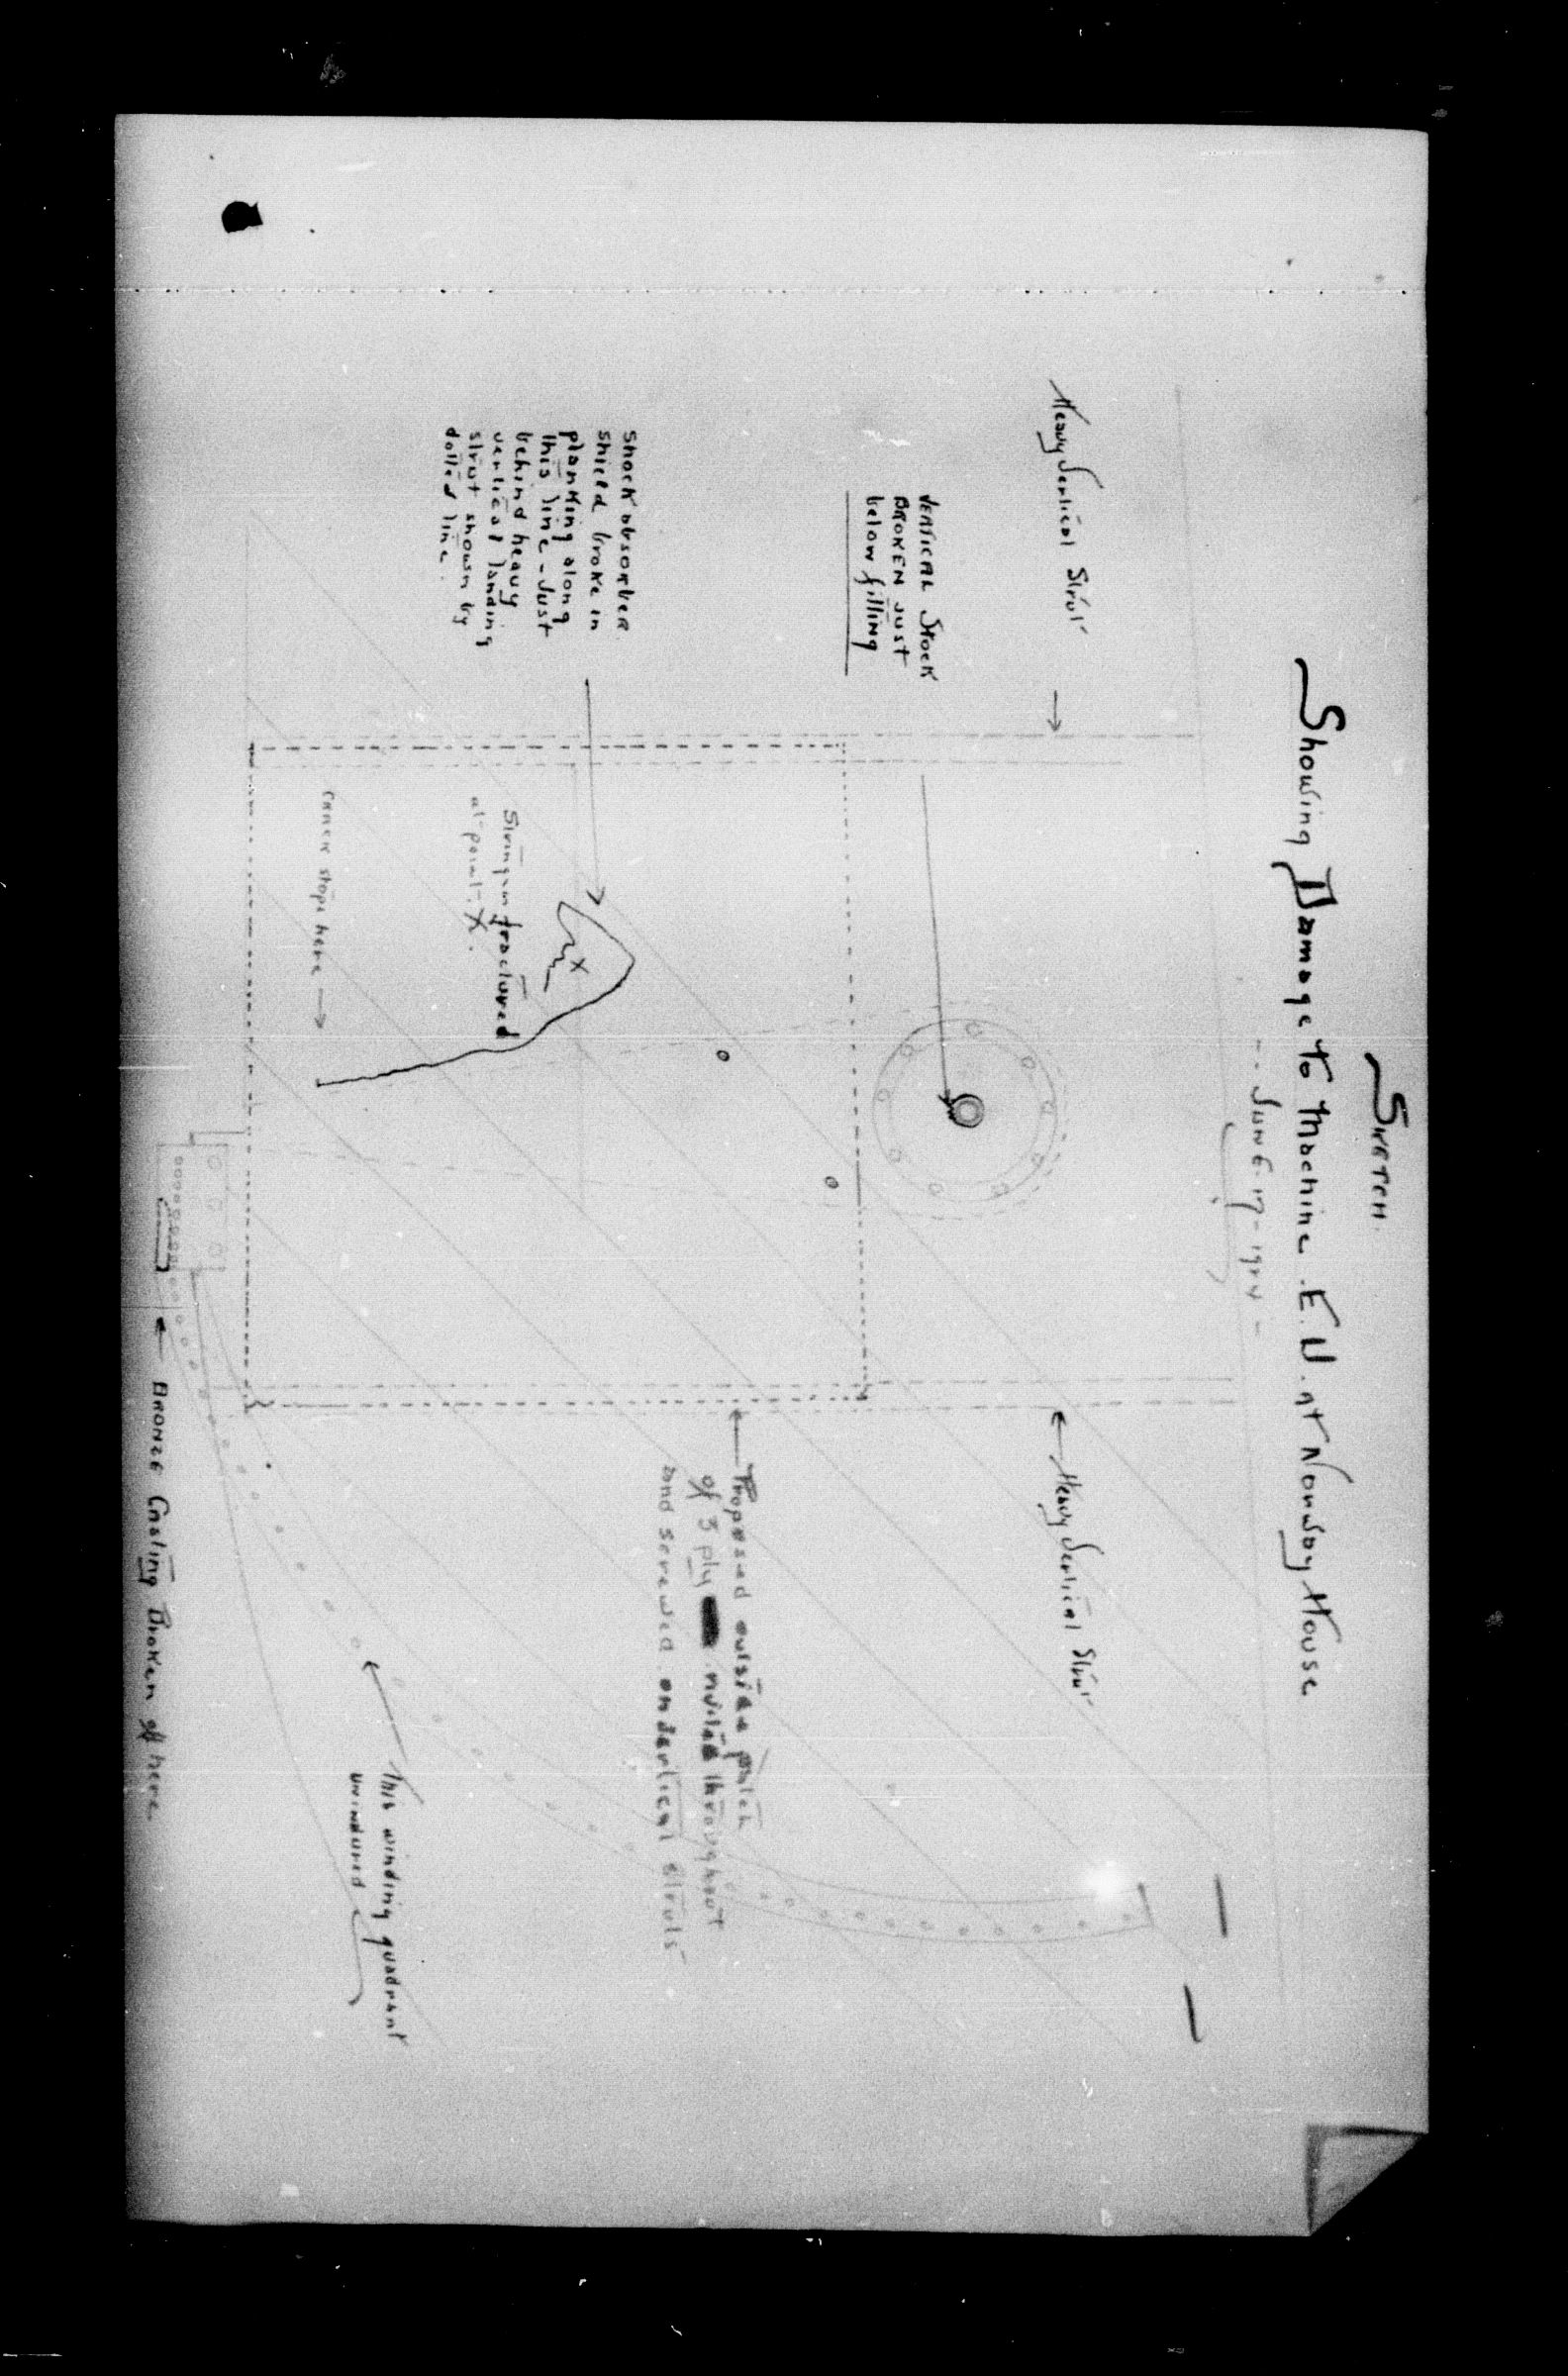 SKETCH.
Showing Damage to Machine E.N. at Norway House
-- JUNE-17-1924 -
Heavy Vertical Strut
VERTICAL Stock
BROKEN JUST
below fitting
Shock absorber
shield broke in
planking along
this line - Just
behind heavy
vertical landing
strut shown by
dotted line.
Stringer fractured
at point - X.
X
CRACK stops here
Heavy Vertical Strut
Proposed outside patch
of 3 ply riveted throughout
and screwed on vertical struts
This winding quadrant
uninjured
BRONZE Casting Broken off here